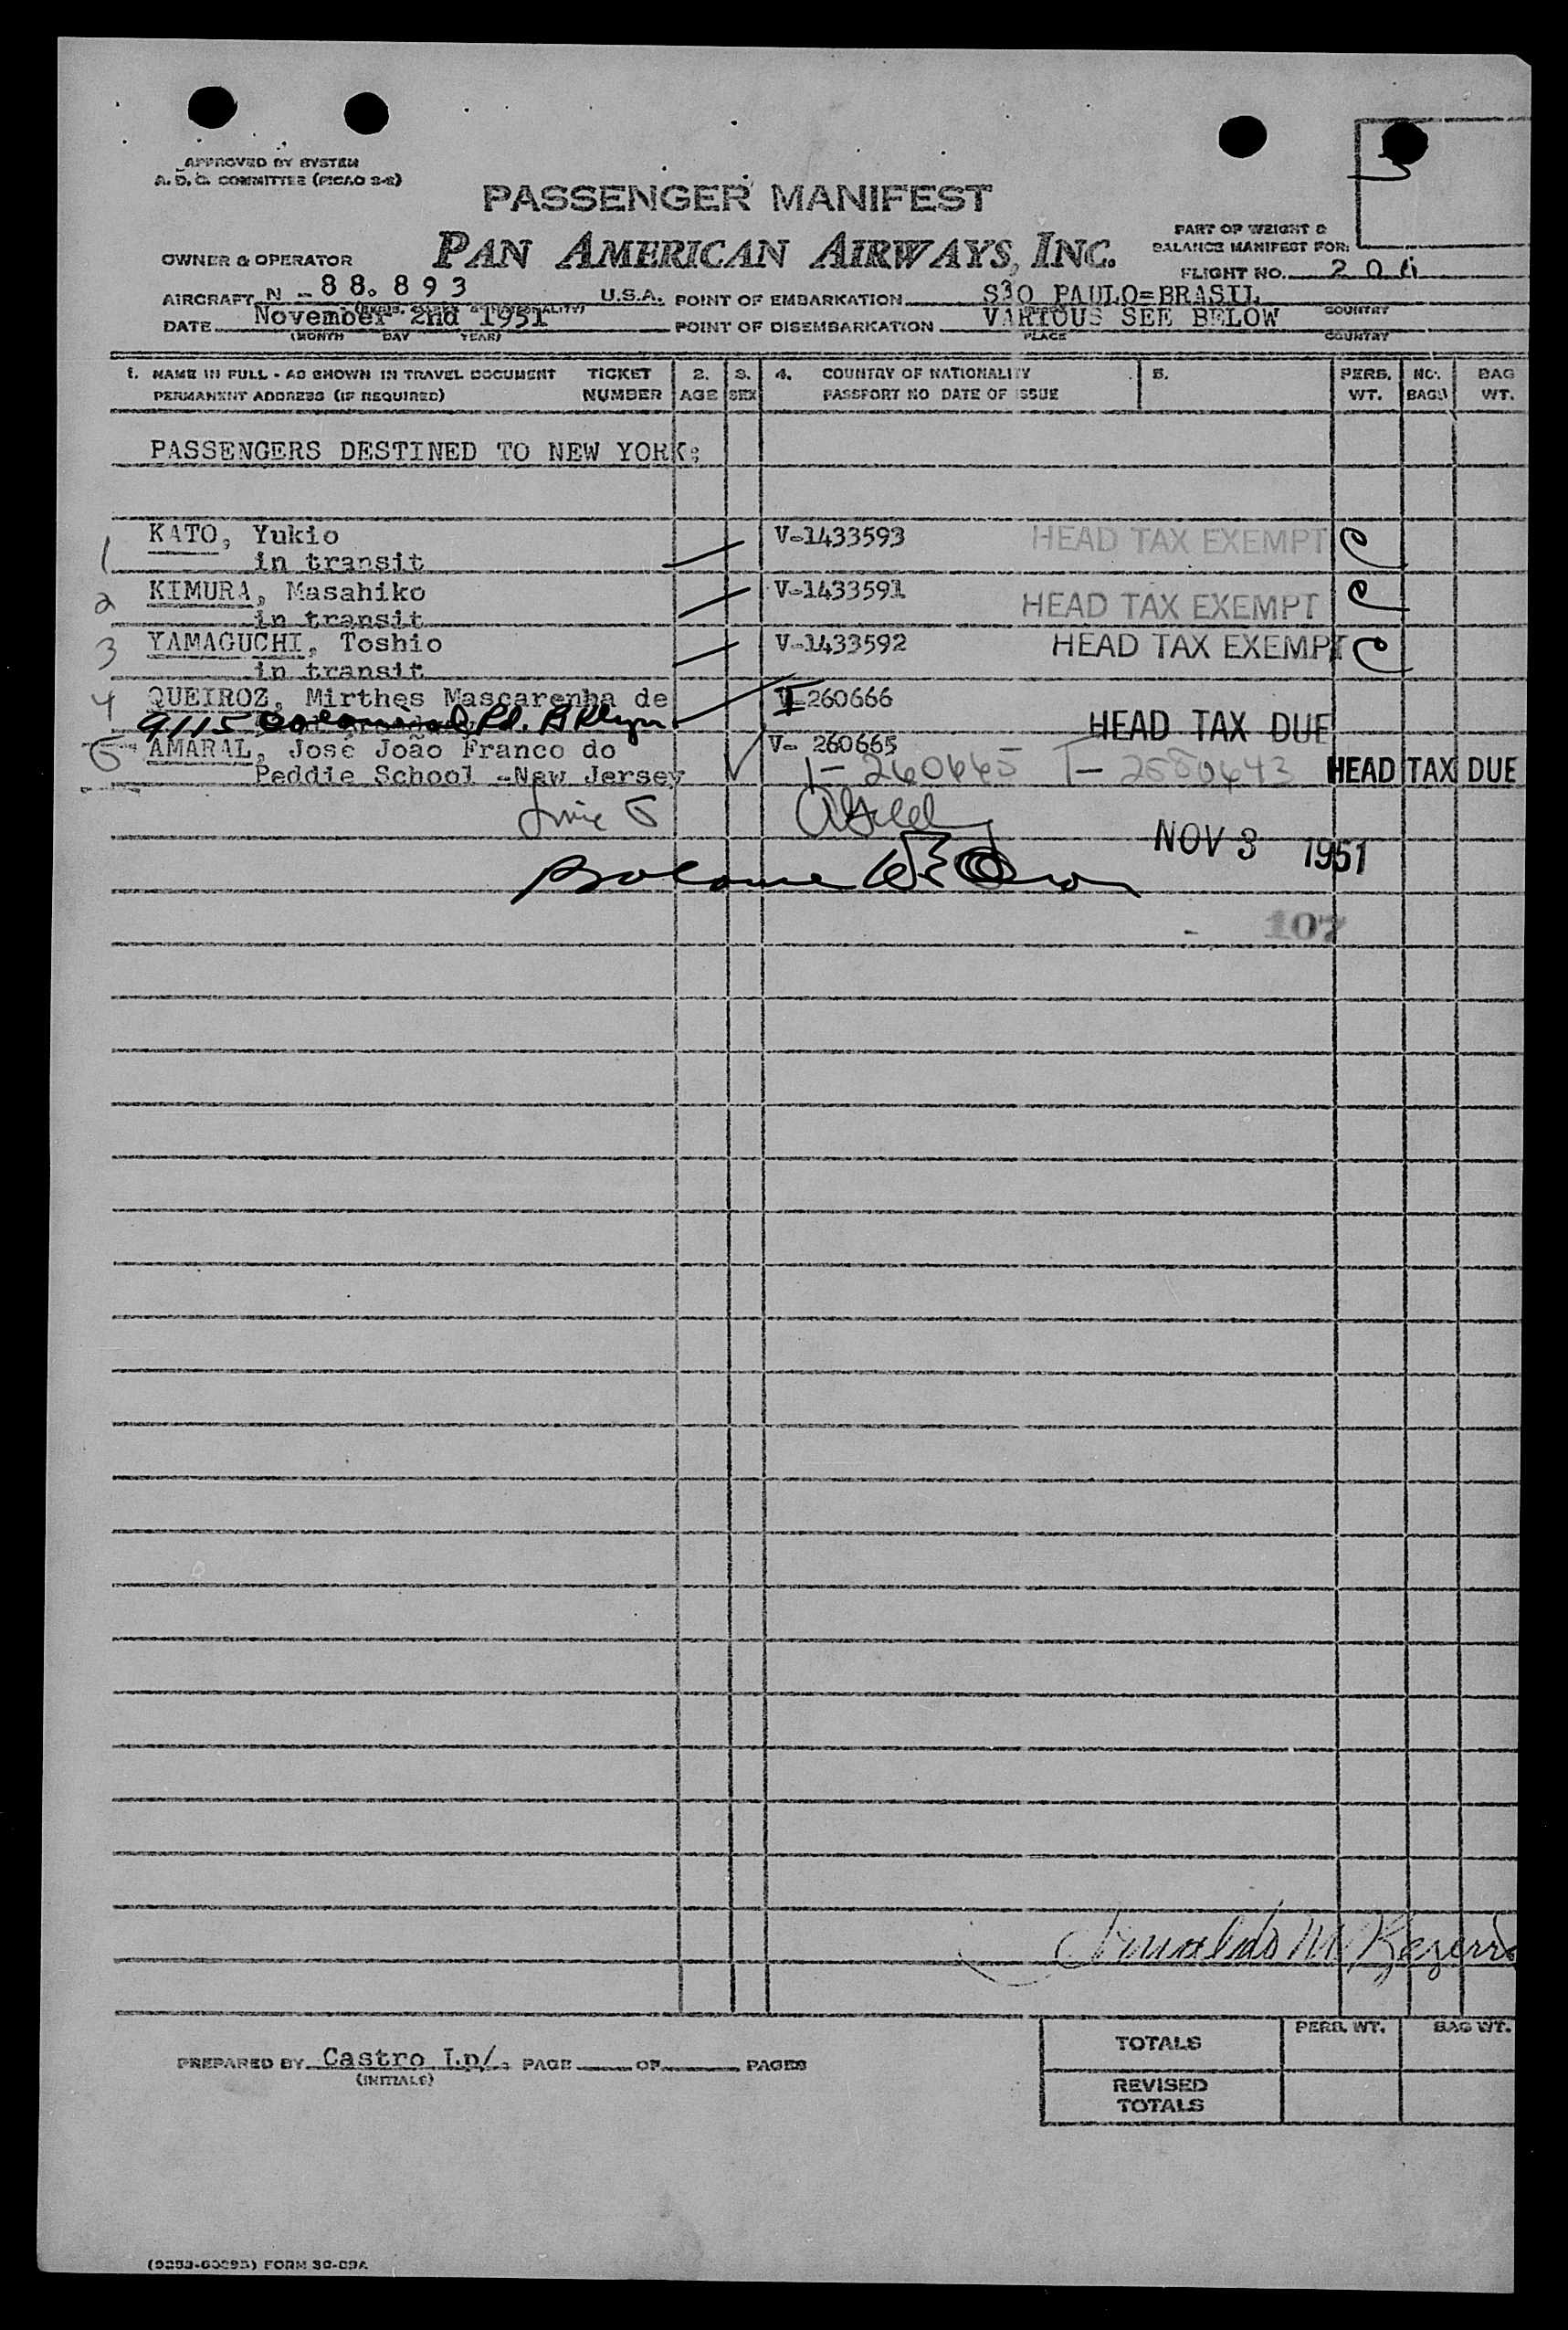 APPROVED BY SYSTEM
A. D. C. COMMITTEE (PICAO 2-2)
PASSENGER MANIFEST
PART OF WEIGHT &
BALANCE MANIFEST FOR:
OWNER & OPERATOR PAN AMERICAN AIRWAYS, INC.
FLIGHT NO. 204
AIRCRAFT N - 88.893 U.S.A. POINT OF EMBARKATION SÃO PAULO=BRASIL
COUNTRY
DATE November 2nd 1951 POINT OF DISEMBARKATION VARIOUS SEE BELOW
(MONTH DAY YEAR) PLACE COUNTRY
1. NAME IN FULL - AS SHOWN IN TRAVEL DOCUMENT TICKET 2. 3. 4. COUNTRY OF NATIONALITY 5. PERS. NO. BAG
PERMANENT ADDRESS (IF REQUIRED) NUMBER AGE SEX PASSPORT NO DATE OF ISSUE WT. BAGS WT.
PASSENGERS DESTINED TO NEW YORK:
1 KATO, Yukio V-1433593 HEAD TAX EXEMPT
in transit
2 KIMURA, Masahiko V-1433591 HEAD TAX EXEMPT
in transit
3 YAMAGUCHI, Toshio V-1433592 HEAD TAX EXEMPT
in transit
4 QUEIROZ, Mirthes Mascarenha de I 260666
9115 Colonial Rd. BKlyn HEAD TAX DUE
5 AMARAL, José João Franco do V- 260665
Peddie School -New Jersey HEAD TAX DUE
Line 5
NOV 3 1951
107
PREPARED BY Castro Lp/. PAGE OF PAGES
(INITIALS)
PERS. WT. BAG WT.
TOTALS
REVISED
TOTALS